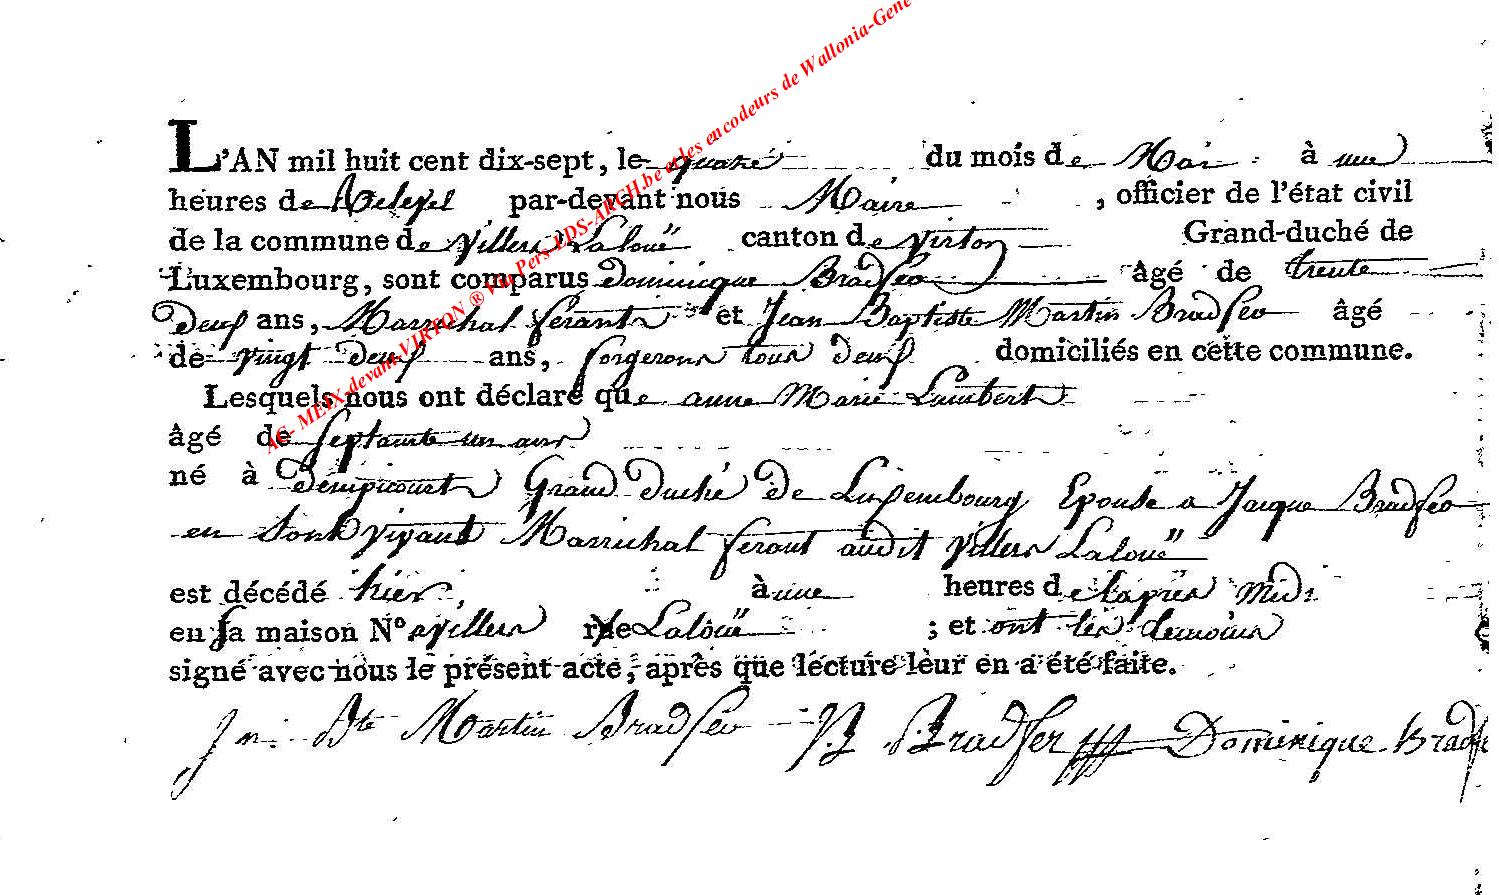 AC- MEIX-devant-VIRTON ® Via Pers-LDS-ARCH.be et les encodeurs de Wallonia-Gene
L'AN mil huit cent dix-sept, le quatre du mois de Mai à une
heures de par-devant nous Maire , officier de l'état civil
de la commune de Villers Laloue canton de Virton Grand-duché de
Luxembourg, sont comparus Dominique Bradfer âgé de trente
deux ans, Marrichal ferant et Jean Baptiste Martin Bradfer âgé
de vingt deux ans, forgerons tous deux domiciliés en cette commune.
Lesquels nous ont déclaré que anne Marie Lambert
âgé de septante un ans
né à Grand duché de Luxembourg Epouse a Jacque Bradfer
en sont vivant Marrichal ferant audit Villers Laloue
est décédé hier, à une heures de lapres midi
en sa maison N° a Villers rue Laloue ; et ont les temoins
signé avec nous le présent acte, après que lecture leur en a été faite.
Jn Bte Martin Bradfer Bradfer Dominique Bradfe